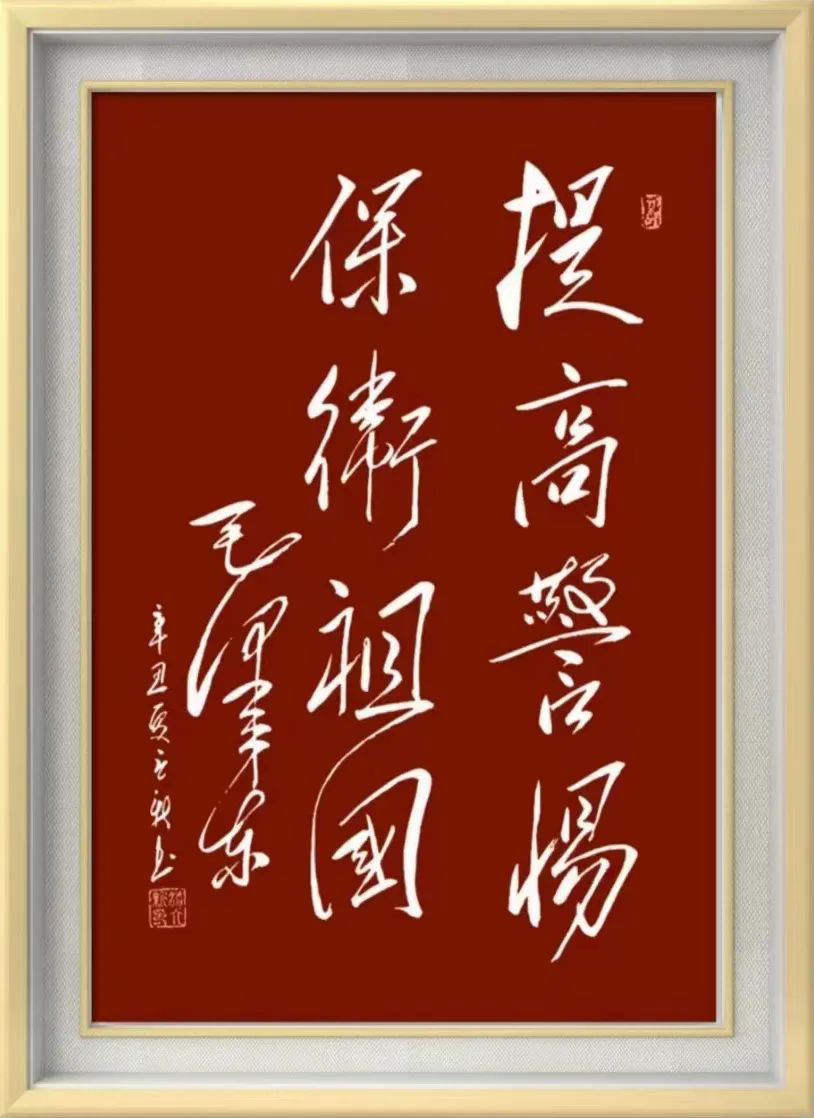 提高警惕
保衛祖國
毛泽东
辛丑夏